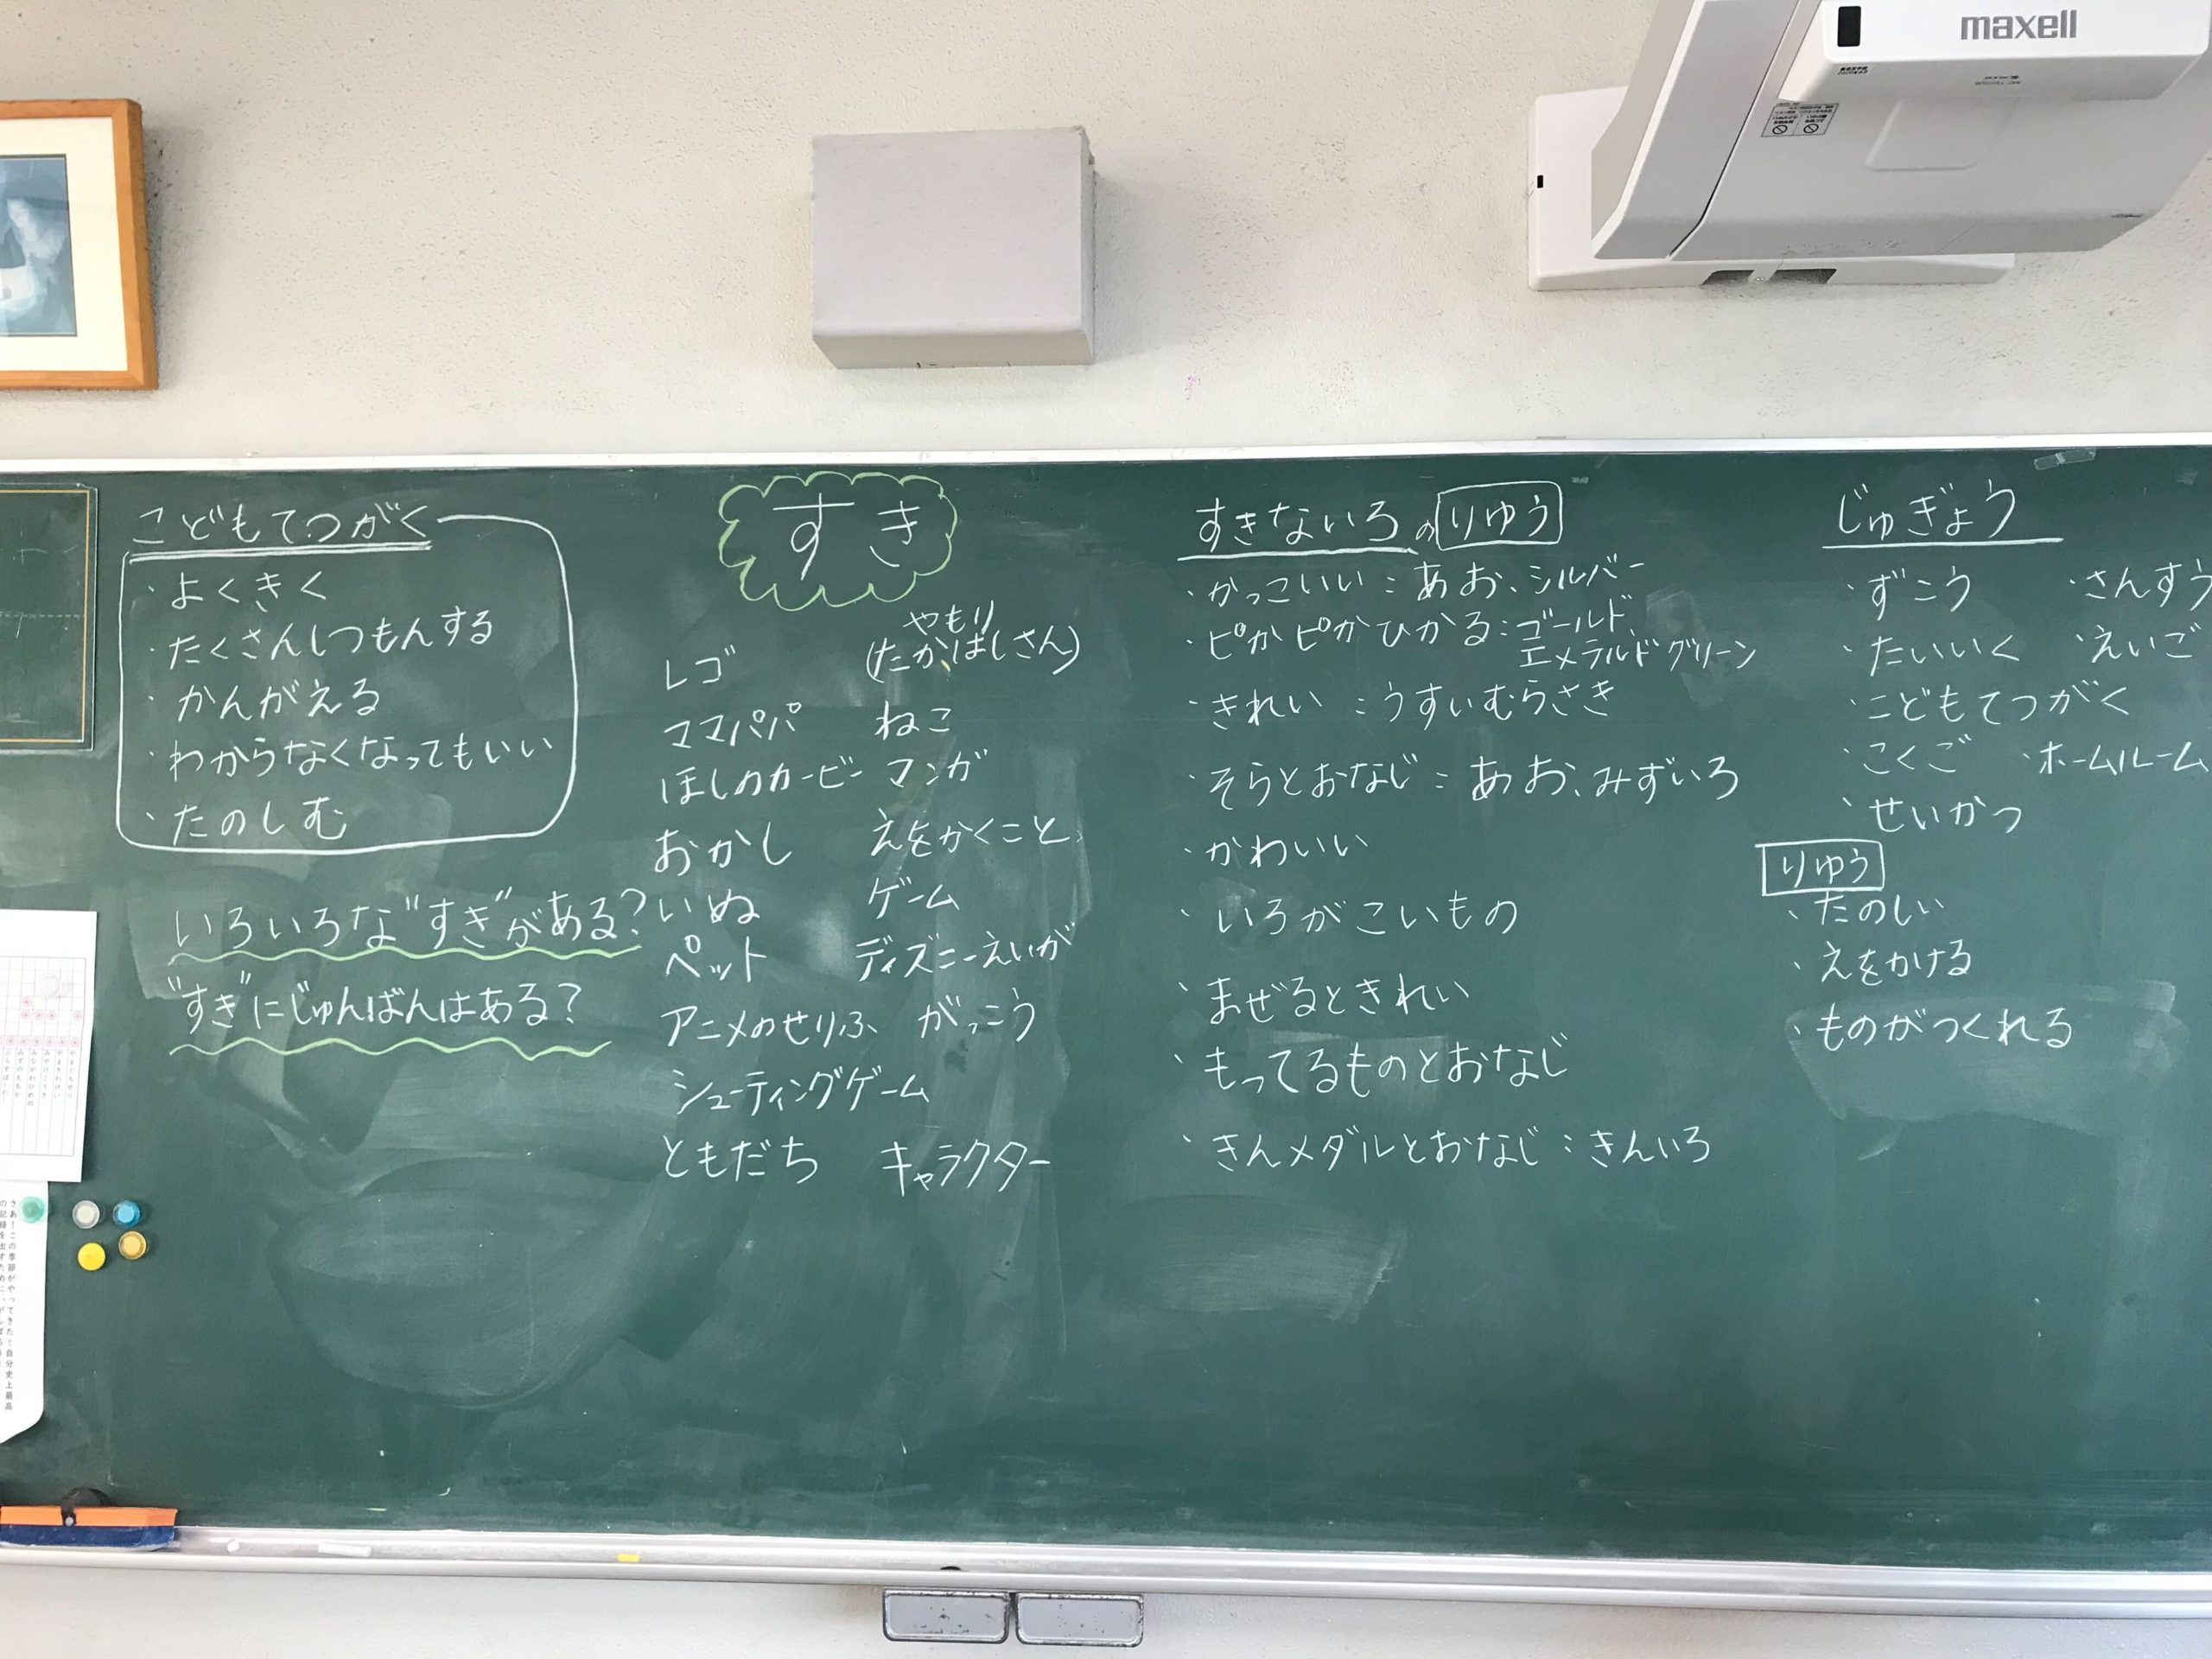 maxell
こどもてつがく
・よくきく
・たくさんしつもんする
・かんがえる
・わからなくなってもいい
・たのしむ
いろいろな"すき"がある?
"すき"にじゅんばんはある?
すき
レゴ
やもり
(たかはしさん)
ママパパ ねこ
ほしのカービー マンガ
おかし えをかくこと
いぬ ゲーム
ペット ディズニーえいが
アニメのせりふ がっこう
シューティングゲーム
ともだち キャラクター
すきないろのりゆう
・かっこいい:あお、シルバー
・ピかピかひかる:ゴールド
エメラルドグリーン
・きれい:うすいむらさき
・そらとおなじ:あお、みずいろ
・かわいい
・いろがこいもの
・まぜるときれい
・もってるものとおなじ
・きんメダルとおなじ:きんいろ
じゅぎょう
・ずこう ・さんすう
・たいいく ・えいご
・こどもてつがく
・こくご ・ホームルーム
・せいかつ
りゆう
・たのしい
・えをかける
・ものがつくれる
さあ!この季節がやってきた!自分史上最高